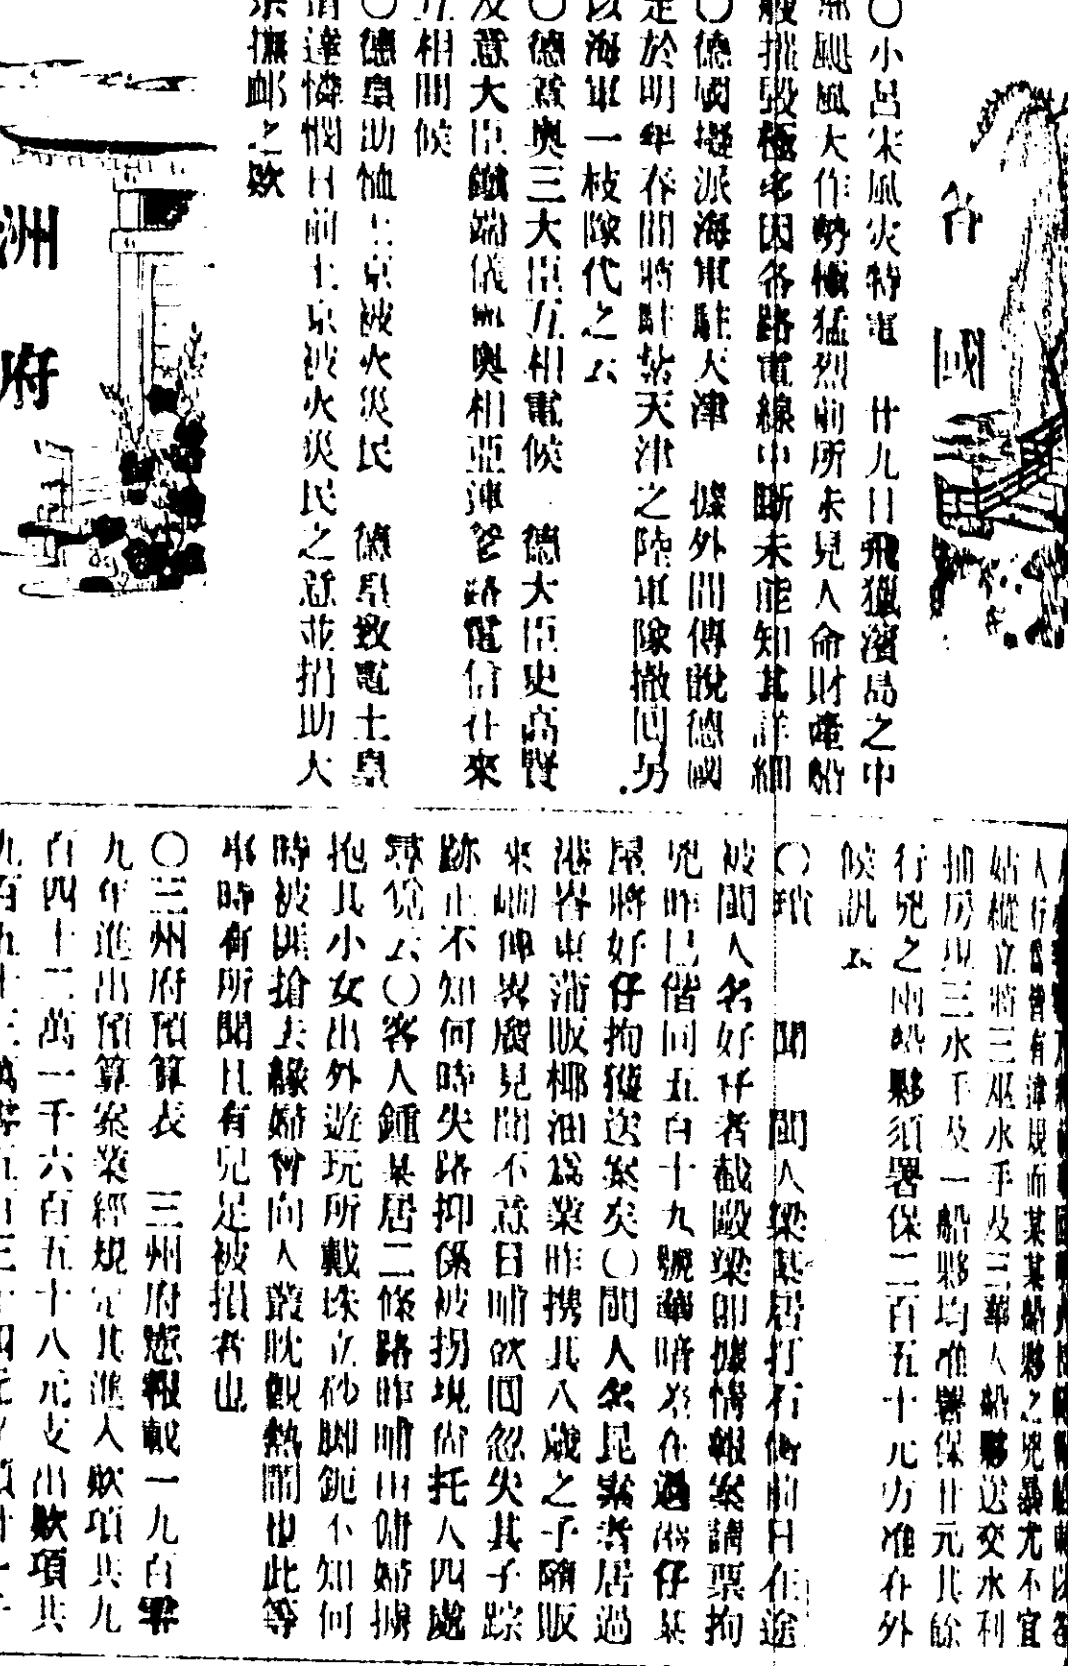 各國
〇小呂宋風災特電　廿九日飛獵濱島之中
颶風大作勢極猛烈前所未見人命財產船
艘摧毀極多因各路電線中斷未能知其詳細
〇德國擬派海軍駐天津　據外間傳說德國
定於明年春間將駐紮天津之陸軍隊撤回另
以海軍一枝隊代之云
〇德意奧三大臣互相電候　德大臣史高賢
及意大臣端儀與奧相亞連電信往來
互相問候
〇德皇助恤土京被火災民　德皇致電土皇
達憐憫日前土京被火災民之意並捐助大
撫卹之欵
洲府
人行為皆有違規而某某船夥之兇暴尤不宜
姑縱立將三巫水手及三華人船夥送交水利
捕房現三水手及一船夥均准署保廿元其餘
行兇之兩船夥須署保二百五十元方准在外
候訊云
〇瑣　　聞　閩人梁某居打石街前日在途
被閩人名好仔者截毆梁即據情報案請票拘
兇昨已偕同五百十九號華暗差在過港仔某
屋將好仔拘獲送案矣〇閩人名昆者居過
港峇東蒲販椰油為業昨携其八歲之子隨販
來見閙不意日晡欲回忽失其子踪
跡正不知何時失路抑係被拐現尙托人四處
尋覓云〇客人鍾某居二條路昨晡由傭婦擕
抱其小女出外遊玩所戴珠立砂脚鈪不知何
時被匪搶去緣婦曾向人叢觀熱鬧也此等
事時有所聞且有兒足被損者也
〇三州府預算表　三州府憲報載一九百零
九年進出預算案業經規定其進入欵項共九
百四十二萬一千六百五十八元支出欵項共